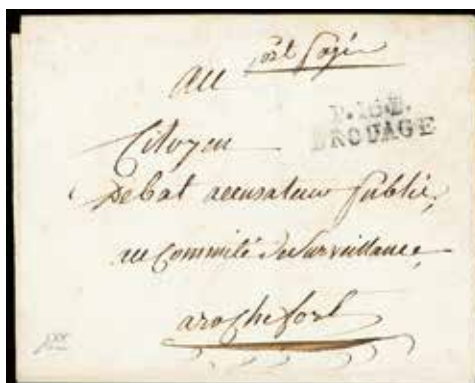 port payé
au
P.16.P.
BROUAGE
Citoyen
Debat accusateur Public,
au Committé de Surveillance
a rochefort